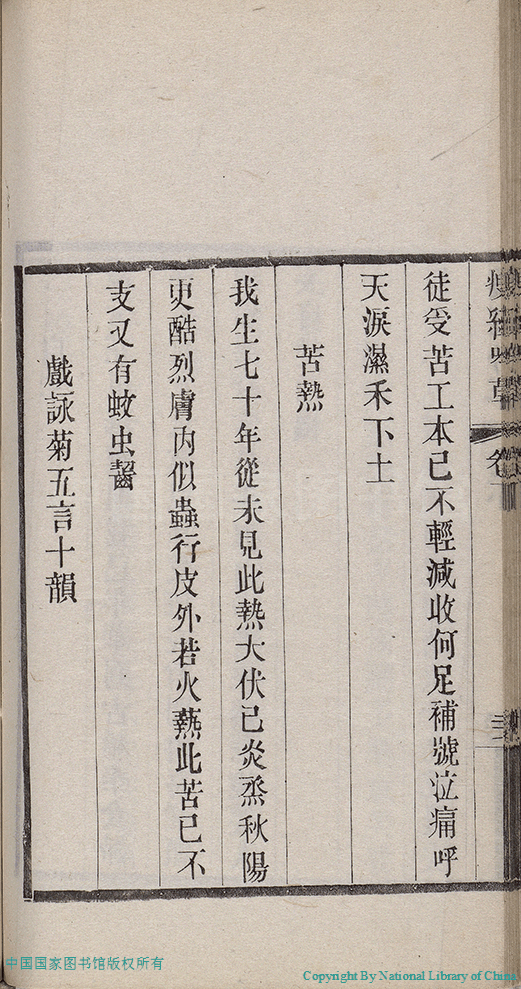 徒受苦工本已不輕減收何足補號泣痛呼
天淚濕禾下土
苦熱
我生七十年從未見此熱大伏已炎烝秋陽
更酷烈膚内似蟲行皮外若火爇此苦已不
支又有蚊虫齧
戲詠菊五言十韻
中国国家图书馆版权所有
Copyright By National Library of China